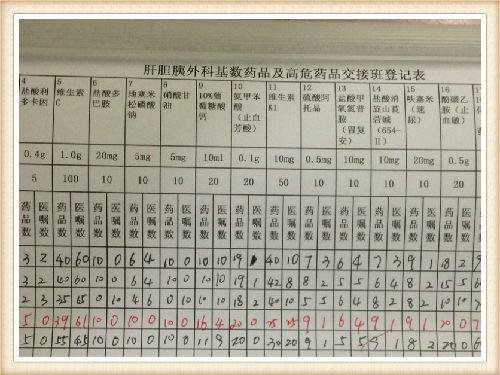 肝胆胰外科基数药品及高危药品交接班登记表
4 5 6 7 8 9 10 11 12 13 14 15 16
盐酸利多卡因 维生素C 盐酸多巴胺 地塞米松磷酸钠 硝酸甘油 10%葡萄糖酸钙 氨甲苯酸(止血芳酸) 维生素K1 硫酸阿托品 盐酸甲氧氯普胺(胃复安) 盐酸消旋山莨菪碱(654-II) 呋塞米(速尿) 酚磺乙胺(止血敏)
0.4g 1.0g 20mg 5mg 5mg 10ml 0.1g 10mg 0.5mg 10mg 10mg 20mg 0.5g
5 100 10 10 10 20 20 50 10 10 10 10 20
药品数 医嘱数 药品数 医嘱数 药品数 医嘱数 药品数 医嘱数 药品数 医嘱数 药品数 医嘱数 药品数 医嘱数 药品数 医嘱数 药品数 医嘱数 药品数 医嘱数 药品数 医嘱数 药品数 医嘱数 药品数 医嘱数
3 2 40 60 10 0 6 4 10 0 10 10 19 1 40 10 7 3 6 4 7 3 9 1 18 2
3 2 40 60 10 0 6 4 10 0 10 10 19 1 42 8 8 2 5 5 6 4 8 2 15 5
2 3 35 65 10 0 4 6 10 0 10 10 18 2 40 10 5 5 6 4 8 2 8 2 10 10
5 0 39 61 10 0 10 0 10 0 16 4 20 0 25 25 9 1 6 4 9 1 9 1 20 0
5 0 55 45 10 0 10 0 10 0 11 9 20 0 30 20 9 1 5 5 9 1 8 2 20 0